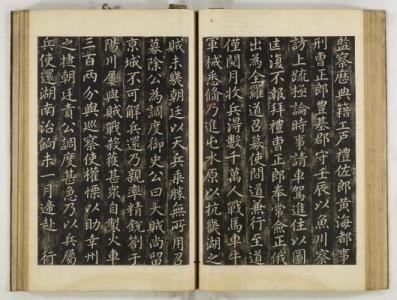 監察歷典籍工戶禮佐郎黃海都事
刑曹正郎豊基郡守壬辰以魚川察
訪上疏極論時事請車駕進住以圖
匡復不報拜禮曹正郎奉常僉正俄
出為全羅道召募使間道兼行至道
僅閱月收兵得數千萬人戰馬車牛
軍械悉備乃進屯水原以抗畿湖之
賊未幾朝廷以天兵乘勝無所用召
募除公為調度御史公曰大賊尚留
京城不可解兵乃親率精銳劄于
陽川屢與賊戰殺獲甚眾自製火車
三百兩分與巡察使權慄以助幸州
之捷朝廷責公調度甚急乃以兵屬
兵使還湖南治餉未一月遽赴 行